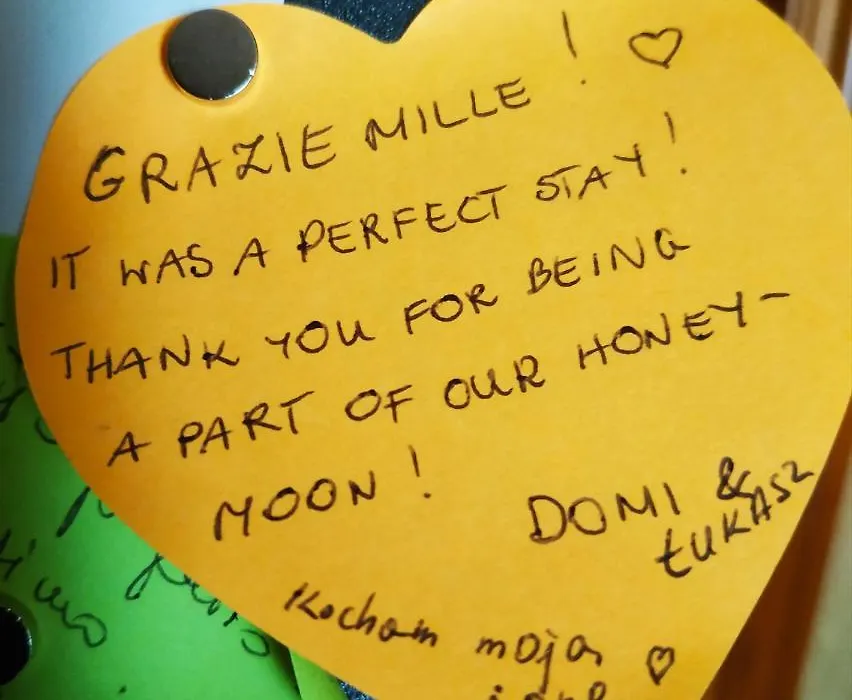 GRAZIE MILLE! ♡
IT WAS A PERFECT STAY!
THANK YOU FOR BEING
A PART OF OUR HONEY-
MOON!
DOMI &
ŁUKASZ
Kocham moją ♡